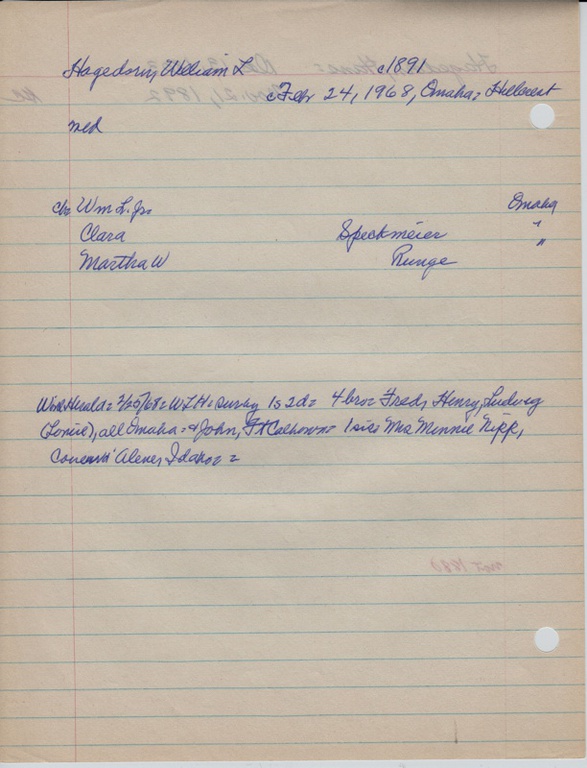 Hagedorn, William L c1891
c Febr 24, 1968, Omaha: Hillcrest
med
ch: Wm L. Jr. Omaha
Clara Speckmeier "
Martha W Runge "
W Herald: 2/25/68: WLH: surv by 1s 2d: 4 bro: Fred, Henry, Ludwig
(Louie), all Omaha: & John, Ft Calhoun: 1 sis: Mrs Minnie Nipp,
Alene, Idaho: